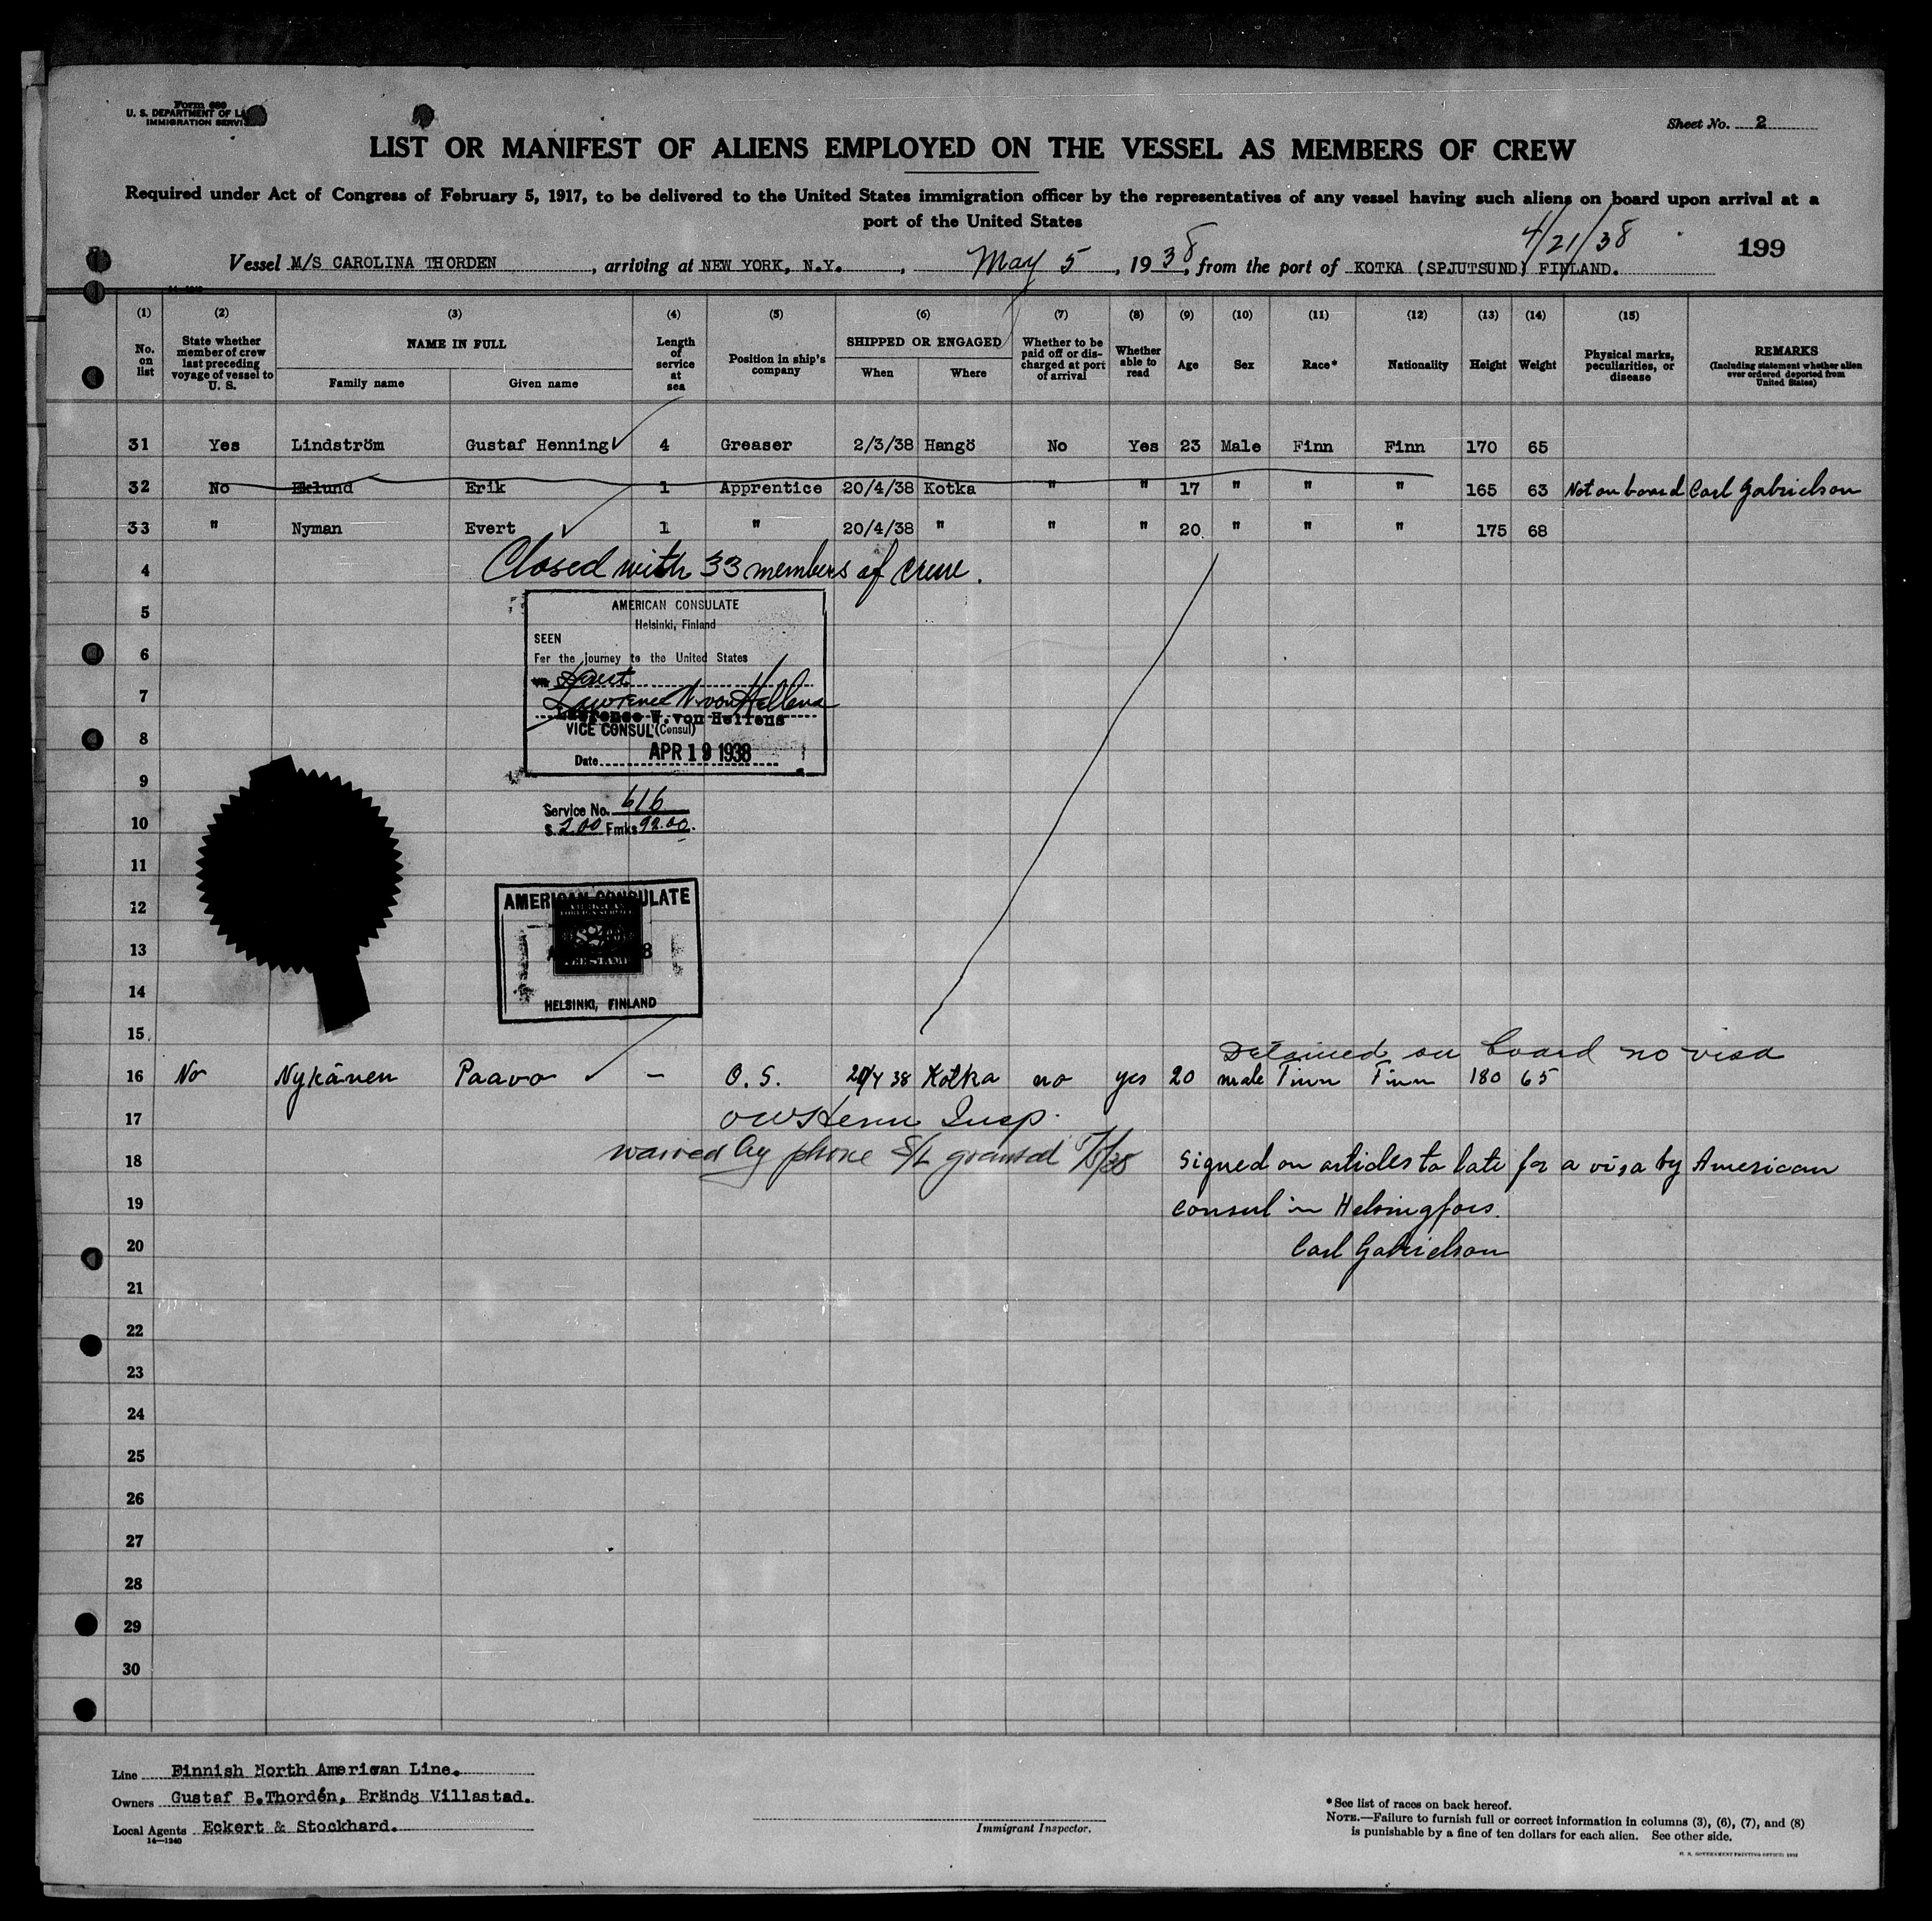 Form 689
U. S. DEPARTMENT OF LA
IMMIGRATION SERVI
Sheet No. 2
LIST OR MANIFEST OF ALIENS EMPLOYED ON THE VESSEL AS MEMBERS OF CREW
Required under Act of Congress of February 5, 1917, to be delivered to the United States immigration officer by the representatives of any vessel having such aliens on board upon arrival at a
port of the United States
4/21/38
199
Vessel M/S CAROLINA THORDEN, arriving at NEW YORK, N.Y., May 5, 1938, from the port of KOTKA (SPJUTSUND) FINLAND.
(1) (2) (3) (4) (5) (6) (7) (8) (9) (10) (11) (12) (13) (14) (15)
No. on list
State whether member of crew last preceding voyage of vessel to U. S.
NAME IN FULL
Family name Given name
Length of service at sea
Position in ship's company
SHIPPED OR ENGAGED
When Where
Whether to be paid off or discharged at port of arrival
Whether able to read
Age
Sex
Race*
Nationality
Height
Weight
Physical marks, peculiarities, or disease
REMARKS
(Including statement whether alien ever ordered deported from United States)
31 Yes Lindström Gustaf Henning 4 Greaser 2/3/38 Hangö No Yes 23 Male Finn Finn 170 65
32 No Eklund Erik 1 Apprentice 20/4/38 Kotka " " 17 " " " 165 63 Not on board Carl Gabrielson
33 " Nyman Evert 1 " 20/4/38 " " " 20 " " " 175 68
4 Closed with 33 members of crew.
5
6
7
8
9
10
11
12
13
14
15
AMERICAN CONSULATE
Helsinki, Finland
SEEN
For the journey to the United States
Direct
Lawrence W. von Hellens
Lawrence W. von Hellens
VICE CONSUL (Consul)
Date APR 19 1938
Service No. 616
$ 2.00 Fmks 92.00.
AMERICAN CONSULATE
FEE STAMP
HELSINKI, FINLAND
Detained on board no visa
16 No Nykänen Paavo – O. S. 20/4 38 Kotka no yes 20 male Finn Finn 180 65
17 Insp.
18 waived by phone S/L granted 5/5/38 Signed on articles to late for a visa by American
19 consul in Helsingfors.
20 Carl Gabrielson
21
22
23
24
25
26
27
28
29
30
Line Finnish North American Line.
Owners Gustaf B.Thordén, Brändö Villastad.
Local Agents Eckert & Stockhard.
14—1240
Immigrant Inspector.
*See list of races on back hereof.
NOTE.—Failure to furnish full or correct information in columns (3), (6), (7), and (8)
is punishable by a fine of ten dollars for each alien. See other side.